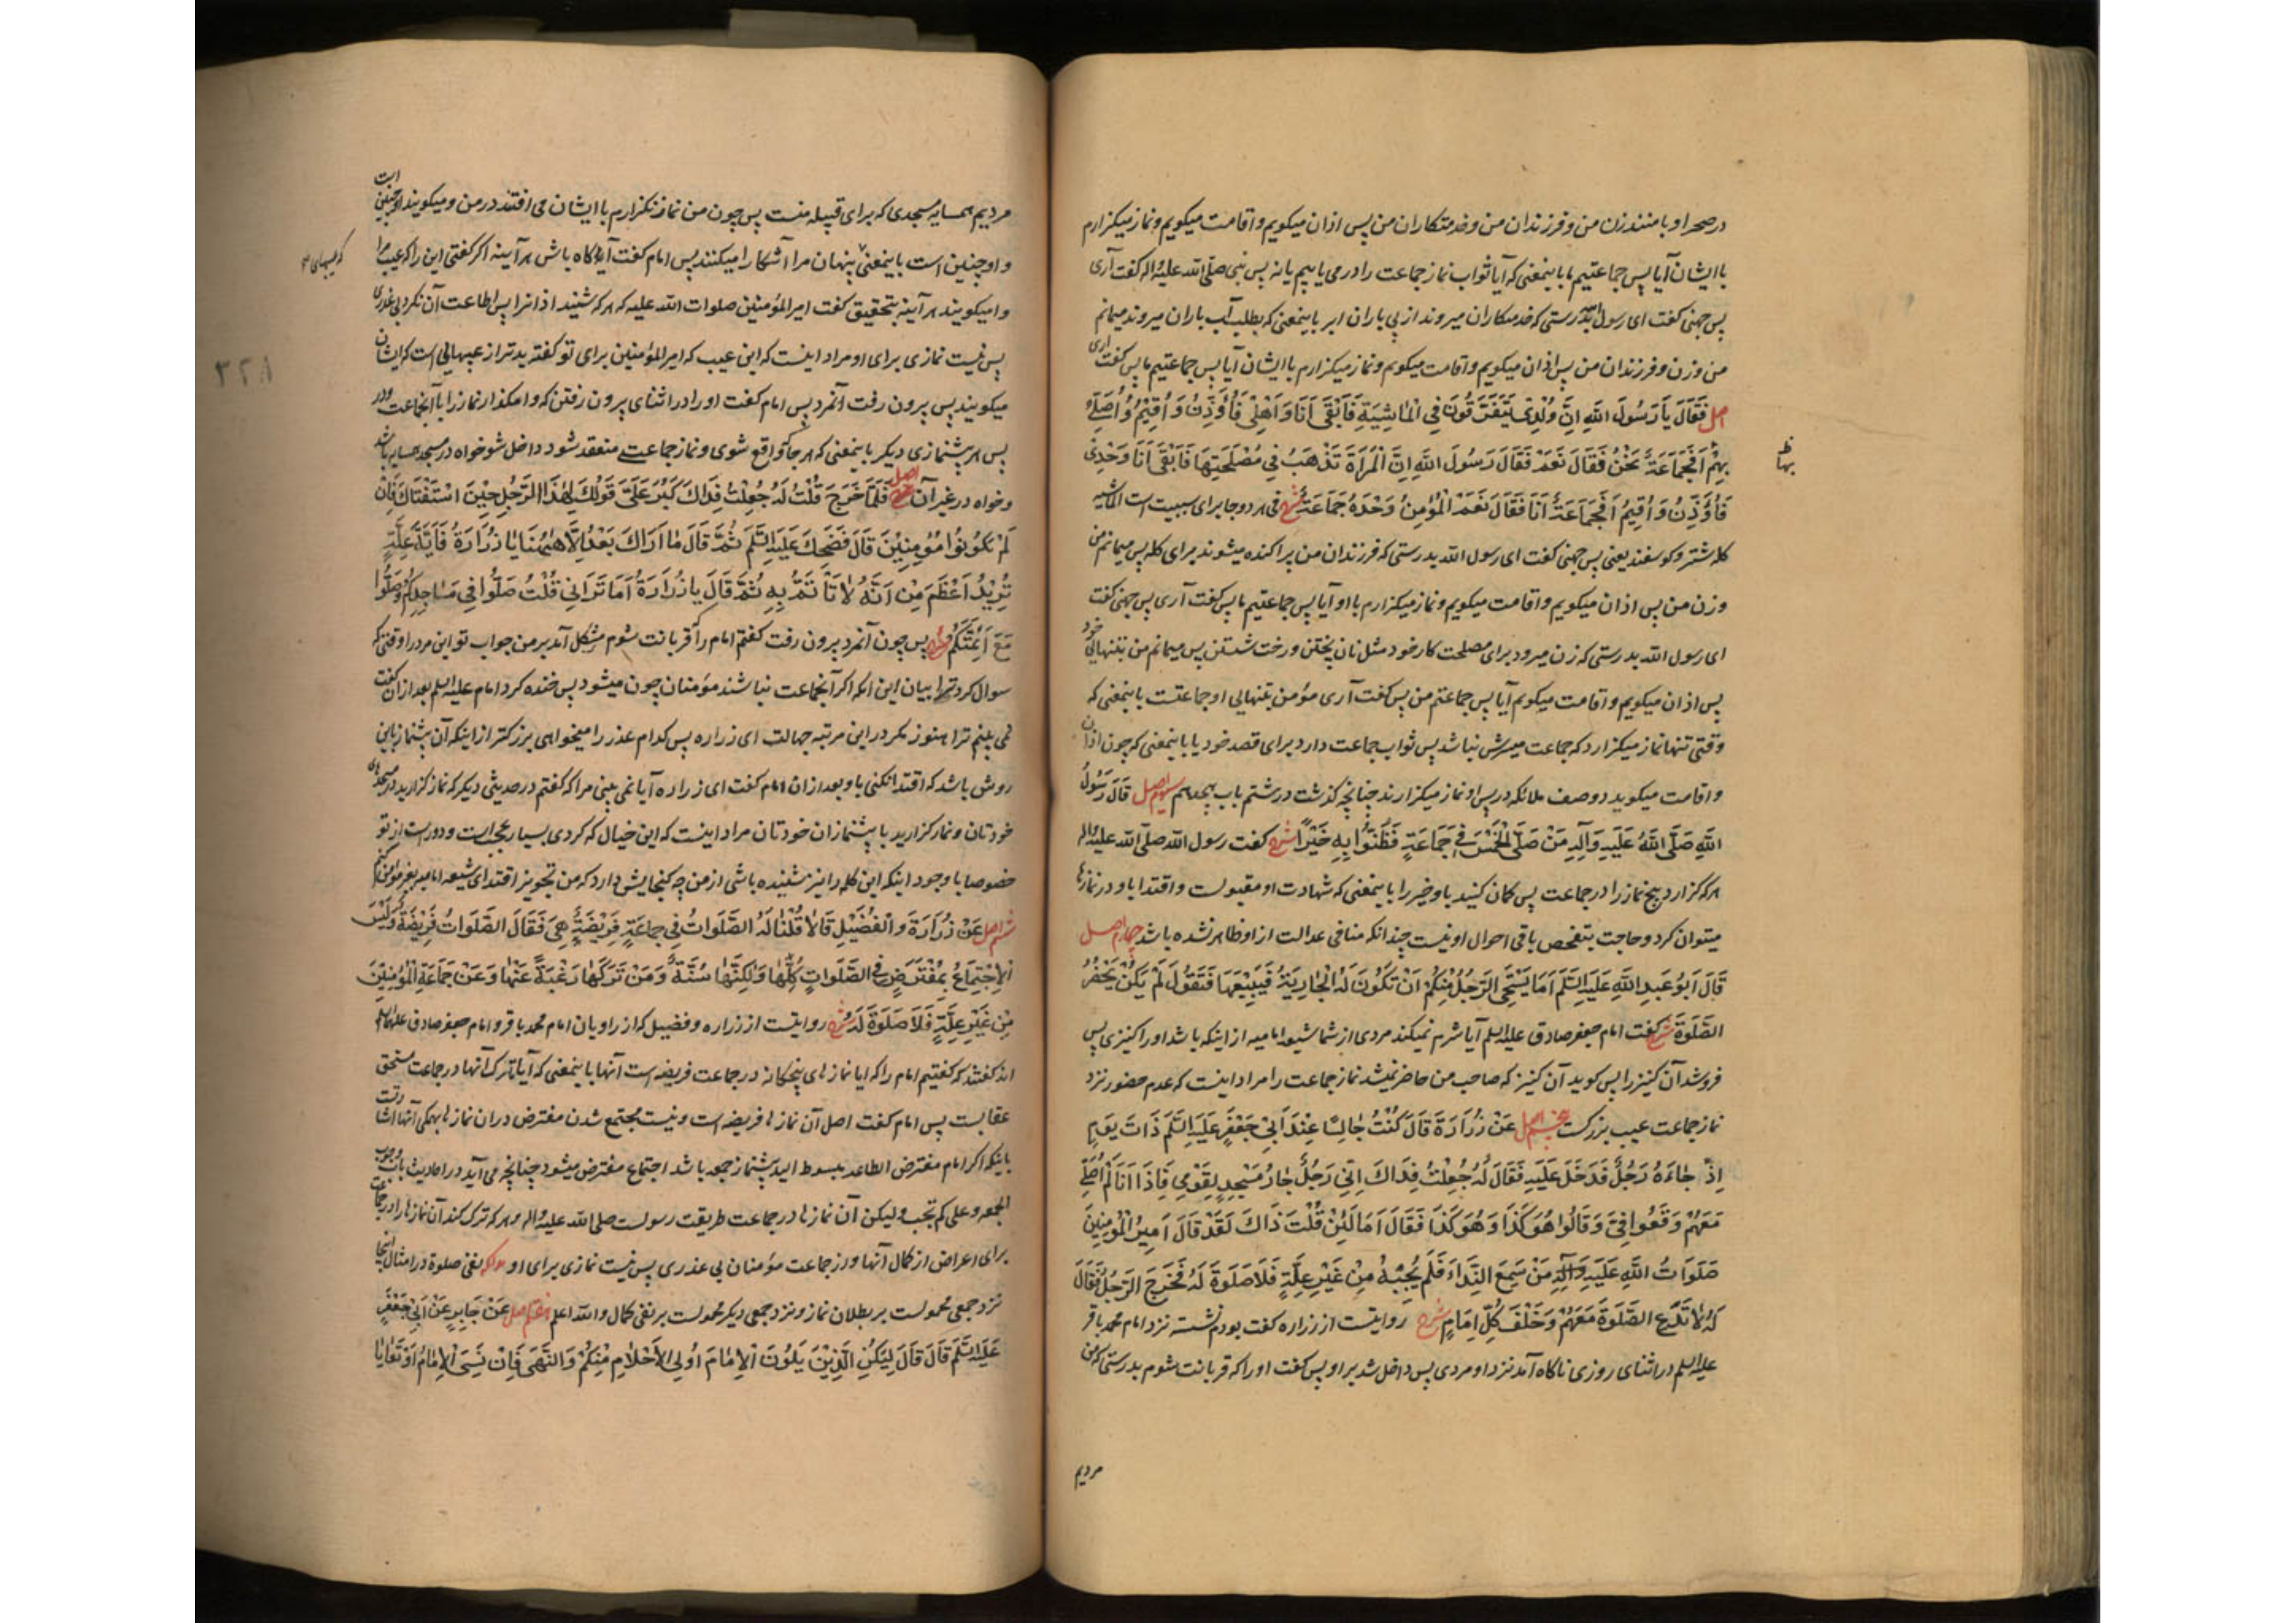 در صحرا و با منند زن من و فرزندان من و خدمتکاران من پس اذان میکویم و اقامت میکویم و نماز میکزارم
با ایشان آیا پس جماعتیم ما باینمعنی که آیا ثواب نماز جماعت را درمی یابیم یا نه پس نبی صلّی الله علیه و اله کفت آری
پس جهنی کفت ای رسول الله بدرستی که خدمتکاران میروند از پی باران ابر باینمعنی که بطلب آب باران میروند میمانم
من و زن و فرزندان من پس اذان میکویم و اقامت میکویم و نماز میکزارم با ایشان آیا پس جماعتیم ما پس کفت آری
اصل فَقَالَ یَا رَسُولَ اللهِ اِنَّ وُلْدِی یَتَفَرَّقُونَ فِی الْمَاشِیَةِ فَاَبْقَی اَنَا وَ اَهْلِی فَاُؤَذِّنُ وَ اُقِیْمُ وَ اُصَلِّی
بِهِمْ اَفَجَمَاعَةٌ نَحْنُ فَقَالَ نَعَمْ فَقَالَ رَسُولَ اللهِ اِنَّ الْمَرْاَةَ تَذْهَبُ فِی مَصْلَحَتِهَا فَاَبْقَی اَنَا وَحْدِی
فَاُؤَذِّنُ وَ اُقِیمُ اَفَجَمَاعَةٌ اَنَا فَقَالَ نَعَمْ الْمُؤْمِنُ وَحْدَهُ جَمَاعَةٌ شرح فی هر دو جا برای سببیت است الماشیه
کله شتر و کوسفند یعنی پس جهنی کفت ای رسول الله بدرستی که فرزندان من پراکنده میشوند برای کله پس میمانم من
و زن من پس اذان میکویم و اقامت میکویم و نماز میکزارم با او آیا پس جماعتیم ما پس کفت آری پس جهنی کفت
ای رسول الله بدرستی که زن میرود برای مصلحت کار خود مثل نان پختن و رخت شستن پس میمانم من بتنهایی خود
پس اذان میکویم و اقامت میکویم آیا پس جماعتم من پس کفت آری مؤمن بتنهایی او جماعتست باینمعنی که
وقتی تنها نماز میکزارد که جماعت میسرش نباشد پس ثواب جماعت دارد برای قصد خود یا باینمعنی که چون اذان
و اقامت میکوید دو صف ملائکه در پس او نماز میکزارند چنانچه کذشت در ششم باب هجدهم سیوم اصل قَالَ رَسُولُ
اللهِ صَلَّی اللهُ عَلَیهِ وَ آلِهِ مَنْ صَلَّی الْخَمْسَ فِی جَمَاعَةٍ فَظُنُّوا بِهِ خَیْرًا شرح کفت رسول الله صلّی الله علیه و اله
هر که کزارد پنج نماز را در جماعت پس کمان کنید باو خیر را باینمعنی که شهادت او مقبولست و اقتدا باو در نمازها
میتوان کرد و حاجت بتفحص باقی احوال او نیست چندانکه منافی عدالت از او ظاهر نشده باشد چهارم اصل
قَالَ اَبُو عَبدِ اللهِ عَلَیهِ السَّلَم اَمَا یَسْتَحْیِ الرَّجُلُ مِنْکُمْ اَنْ تَکُوْنَ لَهُ الْجَارِیَةُ فَیَبِیْعَهَا فَتَقُوْلَ لَمْ یَکُنْ یَحْضُرُ
الصَّلَوةَ شرح کفت امام جعفر صادق علیه السلم آیا شرم نمیکند مردی از شما شیعه امامیه از اینکه باشد او را کنیزی پس
فروشد آن کنیز را پس کوید آن کنیز که صاحب من حاضر نمیشد نماز جماعت را مراد اینست که عدم حضور نزد
نماز جماعت عیب بزرکست پنجم اصل عَنْ زُرَارَةَ قَالَ کُنْتُ جَالِسًا عِنْدَ اَبِیْ جَعْفَرٍ عَلَیهِ السَّلَم ذَاتَ یَوْمٍ
اِذْ جَاءَهُ رَجُلٌ فَدَخَلَ عَلَیهِ فَقَالَ لَهُ جُعِلْتُ فِدَاكَ اِنِّی رَجُلٌ جَارُ مَسْجِدٍ لِقَوْمِی فَاِذَا اَنَا لَمْ اُصَلِّ
مَعَهُمْ وَقَعُوا فِیَّ وَ قَالُوا هُوَ کَذَا وَ هُوَ کَذَا فَقَالَ اَمَا لَئِنْ قُلْتَ ذَاكَ لَقَدْ قَالَ اَمِیرُ الْمُؤْمِنِینَ
صَلَوَاتُ اللهِ عَلَیهِ وَ آلِهِ مَنْ سَمِعَ النِّدَاءَ فَلَم یُجِبْهُ مِنْ غَیْرِ عِلَّةٍ فَلَا صَلَوةَ لَهُ فَخَرَجَ الرَّجُلُ فَقَالَ
لَهُ لَا تَدَعِ الصَّلَوةَ مَعَهُمْ وَ خَلْفَ کُلِّ اِمَامٍ شرح روایتست از زراره کفت بودم نشسته نزد امام محمد باقر
علیه السلم در اثنای روزی ناکاه آمد نزد او مردی پس داخل شد بر او پس کفت او را که قربانت شوم بدرستی که من
مردیم
مردیم همسایه مسجدی که برای قبیله منست پس چون من نماز نکزارم با ایشان می افتند در من و میکویند او چنین است
و او چنین است باینمعنی پنهان مرا آشکارا میکنند پس امام کفت آکاه باش هر آینه اکر کفتی این را که عیب مرا
وامیکویند هر آینه بتحقیق کفت امیر المؤمنین صلوات الله علیه که هر که شنید اذانرا پس اطاعت آن نکرد بی عذری
پس نیست نمازی برای او مراد اینست که این عیب که امیر المؤمنین برای تو کفته بدتر از عیبهائی است که ایشان
میکویند پس بیرون رفت آنمرد پس امام کفت او را در اثنای بیرون رفتن که وامکذار نماز را با آنجماعت و در
پس هر پیشنمازی دیکر باینمعنی که هر جا که واقع شوی و نماز جماعت منعقد شود داخل شو خواه در مسجد همسایه باشد
و خواه در غیر آن اصل فَلَمَّا خَرَجَ قُلْتُ لَهُ جُعِلْتُ فِدَاكَ کَبُرَ عَلَیَّ قَوْلُكَ لِهٰذَا الرَّجُلِ حِیْنَ اسْتَفْتَاكَ فَاِنْ
لَمْ یَکُوْنُوا مُؤْمِنِیْنَ قَالَ فَضَحِكَ عَلَیهِ السَّلَم ثُمَّ قَالَ مَا اَرَاكَ بَعْدُ اِلَّا هٰهُنَا یَا زُرَارَةُ فَاَیَّةَ عِلَّةٍ
تُرِیْدُ اَعْظَمَ مِنْ اَنَّهُ لَا تَأْتَمُّ بِهِ ثُمَّ قَالَ یَا زُرَارَةُ اَمَا تَرَانِی قُلْتُ صَلُّوا فِی مَسَاجِدِکُمْ وَ صَلُّوا
مَعَ اَئِمَّتِکُمْ شرح پس چون آنمرد بیرون رفت کفتم امام را که قربانت شوم مشکل آمد بر من جواب تو این مرد را وقتی که
سوال کرد ترا بیان این آنکه اکر آنجماعت نباشند مؤمنان چون میشود پس خنده کرد امام علیه السلم بعد از آن کفت
نمی بینم ترا هنوز مکر در این مرتبه جهالت ای زراره پس کدام عذر را میخواهی بزرکتر از اینکه آن پیشنماز باین
روش باشد که اقتدا نکنی باو بعد از ان امام کفت ای زراره آیا نمی بینی مرا که کفتم در حدیثی دیکر که نماز کزارید در مسجدهای
خودتان و نماز کزارید با پیشنمازان خودتان مراد اینست که این خیال که کردی بسیار عجب است و دور است از تو
خصوصا با وجود اینکه این کله را نیز شنیده باشی از من چه کنجایش دارد که من تجویز اقتدای شیعه امامیه بغیر مؤمن کنم
ششم اصل عَنْ زُرَارَةَ وَ الْفُضَیْلِ قَالَا قُلْنَا لَهُ الصَّلَوَاتُ فِی جَمَاعَةٍ فَرِیْضَةٌ هِیَ فَقَالَ الصَّلَوَاتُ فَرِیْضَةٌ وَ لَیْسَ
الْاِجْتِمَاعُ بِمُفْتَرَضٍ فِی الصَّلَوَاتِ کُلِّهَا وَ لٰکِنَّهَا سُنَّةٌ وَ مَنْ تَرَکَهَا رَغْبَةً عَنْهَا وَ عَنْ جَمَاعَةِ الْمُؤْمِنِیْنَ
مِنْ غَیْرِ عِلَّةٍ فَلَا صَلَوةَ لَهُ شرح روایتست از زراره و فضیل که از راویان امام محمد باقر و امام جعفر صادق علیهما السلم
اند کفتند که کفتیم امام را که ایا نمازهای پنجکانه در جماعت فریضه است آنها باینمعنی که آیا تارک آنها در جماعت مستحق
عقابست پس امام کفت اصل آن نمازها فریضه است و نیست مجتمع شدن مفترض در ان نمازها بهمکی آنها اشارتست
باینکه اکر امام مفترض الطاعه مبسوط الید پیشنماز جمعه باشد اجتماع مفترض میشود چنانچه می آید در احادیث باب وجوب
الجمعه و علی کم تجب ولیکن آن نمازها در جماعت طریقت رسولست صلی الله علیه و اله و هر که ترک کند آن نمازها را در جماعت
برای اعراض از کمال آنها و از جماعت مؤمنان بی عذری پس نیست نمازی برای او بدانکه نفی صلوة در امثال اینجا
نزد جمعی محمولست بر بطلان نماز و نزد جمعی دیکر محمولست بر نفی کمال و الله اعلم هفتم اصل عَنْ جَابِرٍ عَنْ اَبِیْ جَعْفَرٍ
عَلَیهِ السَّلَم قَالَ قَالَ لِیَکُنِ الَّذِیْنَ یَلُوْنَ الْاِمَامَ اُولِی الْاَحْلَامِ مِنْکُمْ وَ النُّهَی فَاِنْ نَسِیَ الْاِمَامُ اَوْ تَعَایَا